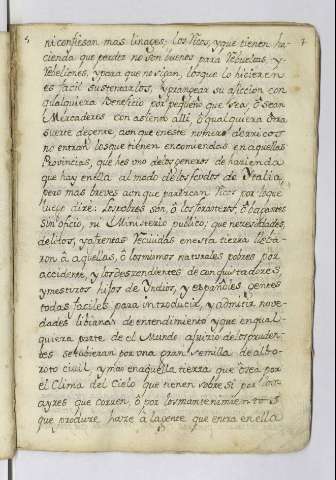 5 7
ni confiesan mas linages: los Ricos, y que tienen ha
cienda que perder no son buenos para Rebueltas, y
Rebeliones, y para que no sigan, los que lo hicieren
es facil sustentarlos, y grangear su aficion con
qualquiera Beneficio por pequeño que sea, ô sean
Mercaderes con asiento alli, ô qualquiera otra
suerte de gente, aun que en este nomero de ricos
no entran los que tienen encomiendas en aquellas
Provincias, que hes uno de los generos de hazienda
que hay en ella al modo de los feudos de Ytalia,
pero mas breves aun que parezcan Ricos por lo que
luego dire: Los pobres son, ô los forasteros, ô bagantes
sin oficio, ni Ministerio publico, que necesidades,
delitos, y afrentas Recividas en esta tierra lleba
ron â aquellas, ô los mismos naturales pobres por
accidente, y los descendientes de conquistadores,
y mestizos hijos de Yndios, y españoles gentes
todas faciles para introducir, y admitir nove
dades libianas de entendimiento y que en qual
quiera parte de el Mundo a juicio de los pruden
tes se tubieran por una gran semilla de albo
roto civil y mas en aquella tierra que ô sea por
el Clima del Cielo que tienen sobre si por los
ayres que corren, ô por los mantenimientos
que produce, haze â la gente que entra en ella